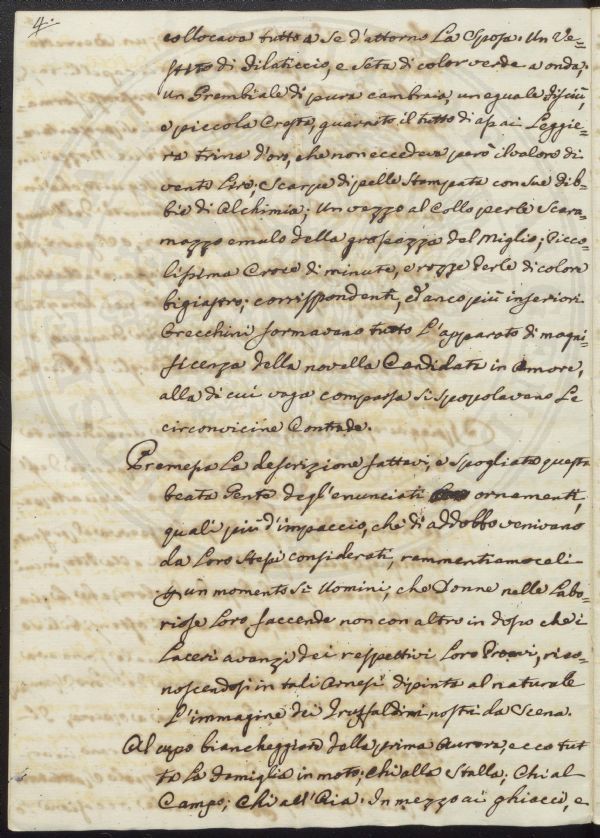 4.
collocava tutto a se d'attorno La Sposa. Un Ve=
stito di Dilaticcio, e Seta di color verde a onda;
un Grembiale di pura cambraia, un eguale
e piccola Cresta, guarnito il tutto di assai Leggie=
ra trina d'oro, che non eccedeva però il valore di
venti Lire; Scarpe di pelle Stampata con Sue Fib=
bie di Alchimia; Un vezzo al Collo perle Scara=
mazze emulo della grossezza del Miglio; Picco=
lissima Croce di minute, e rozze Perle di colore
bigiastro; corrispondenti, ed'anco più inferiori
Orecchini formavano tutto L'apparato di magni=
ficenza della novella Candidata in Amore,
alla di cui vaga comparsa si spopolavano Le
circonvicine Contrade.
Premessa La descrizione fattavi, e spogliata questa
beata Gente degl'enunciati ornamenti,
quali più d'impaccio, che di addobbo venivano
da Loro Stessi considerati, rammentiamoceli
un momento Sì Uomini, che Donne nelle Labo=
riose Loro faccende non con altro in dosso che i
Laceri avanzi dei respettivi Loro Proavi, rico=
noscendosi in tali Arnesi dipinta al naturale
L'immagine dei Truffaldini nostri da Scena.
Al cupo biancheggiare della prima Aurora, ecco tut=
ta La Famiglia in moto; Chi alla Stalla; Chi al
Campo; Chi all'Aia. In mezzo ai ghiacci, e